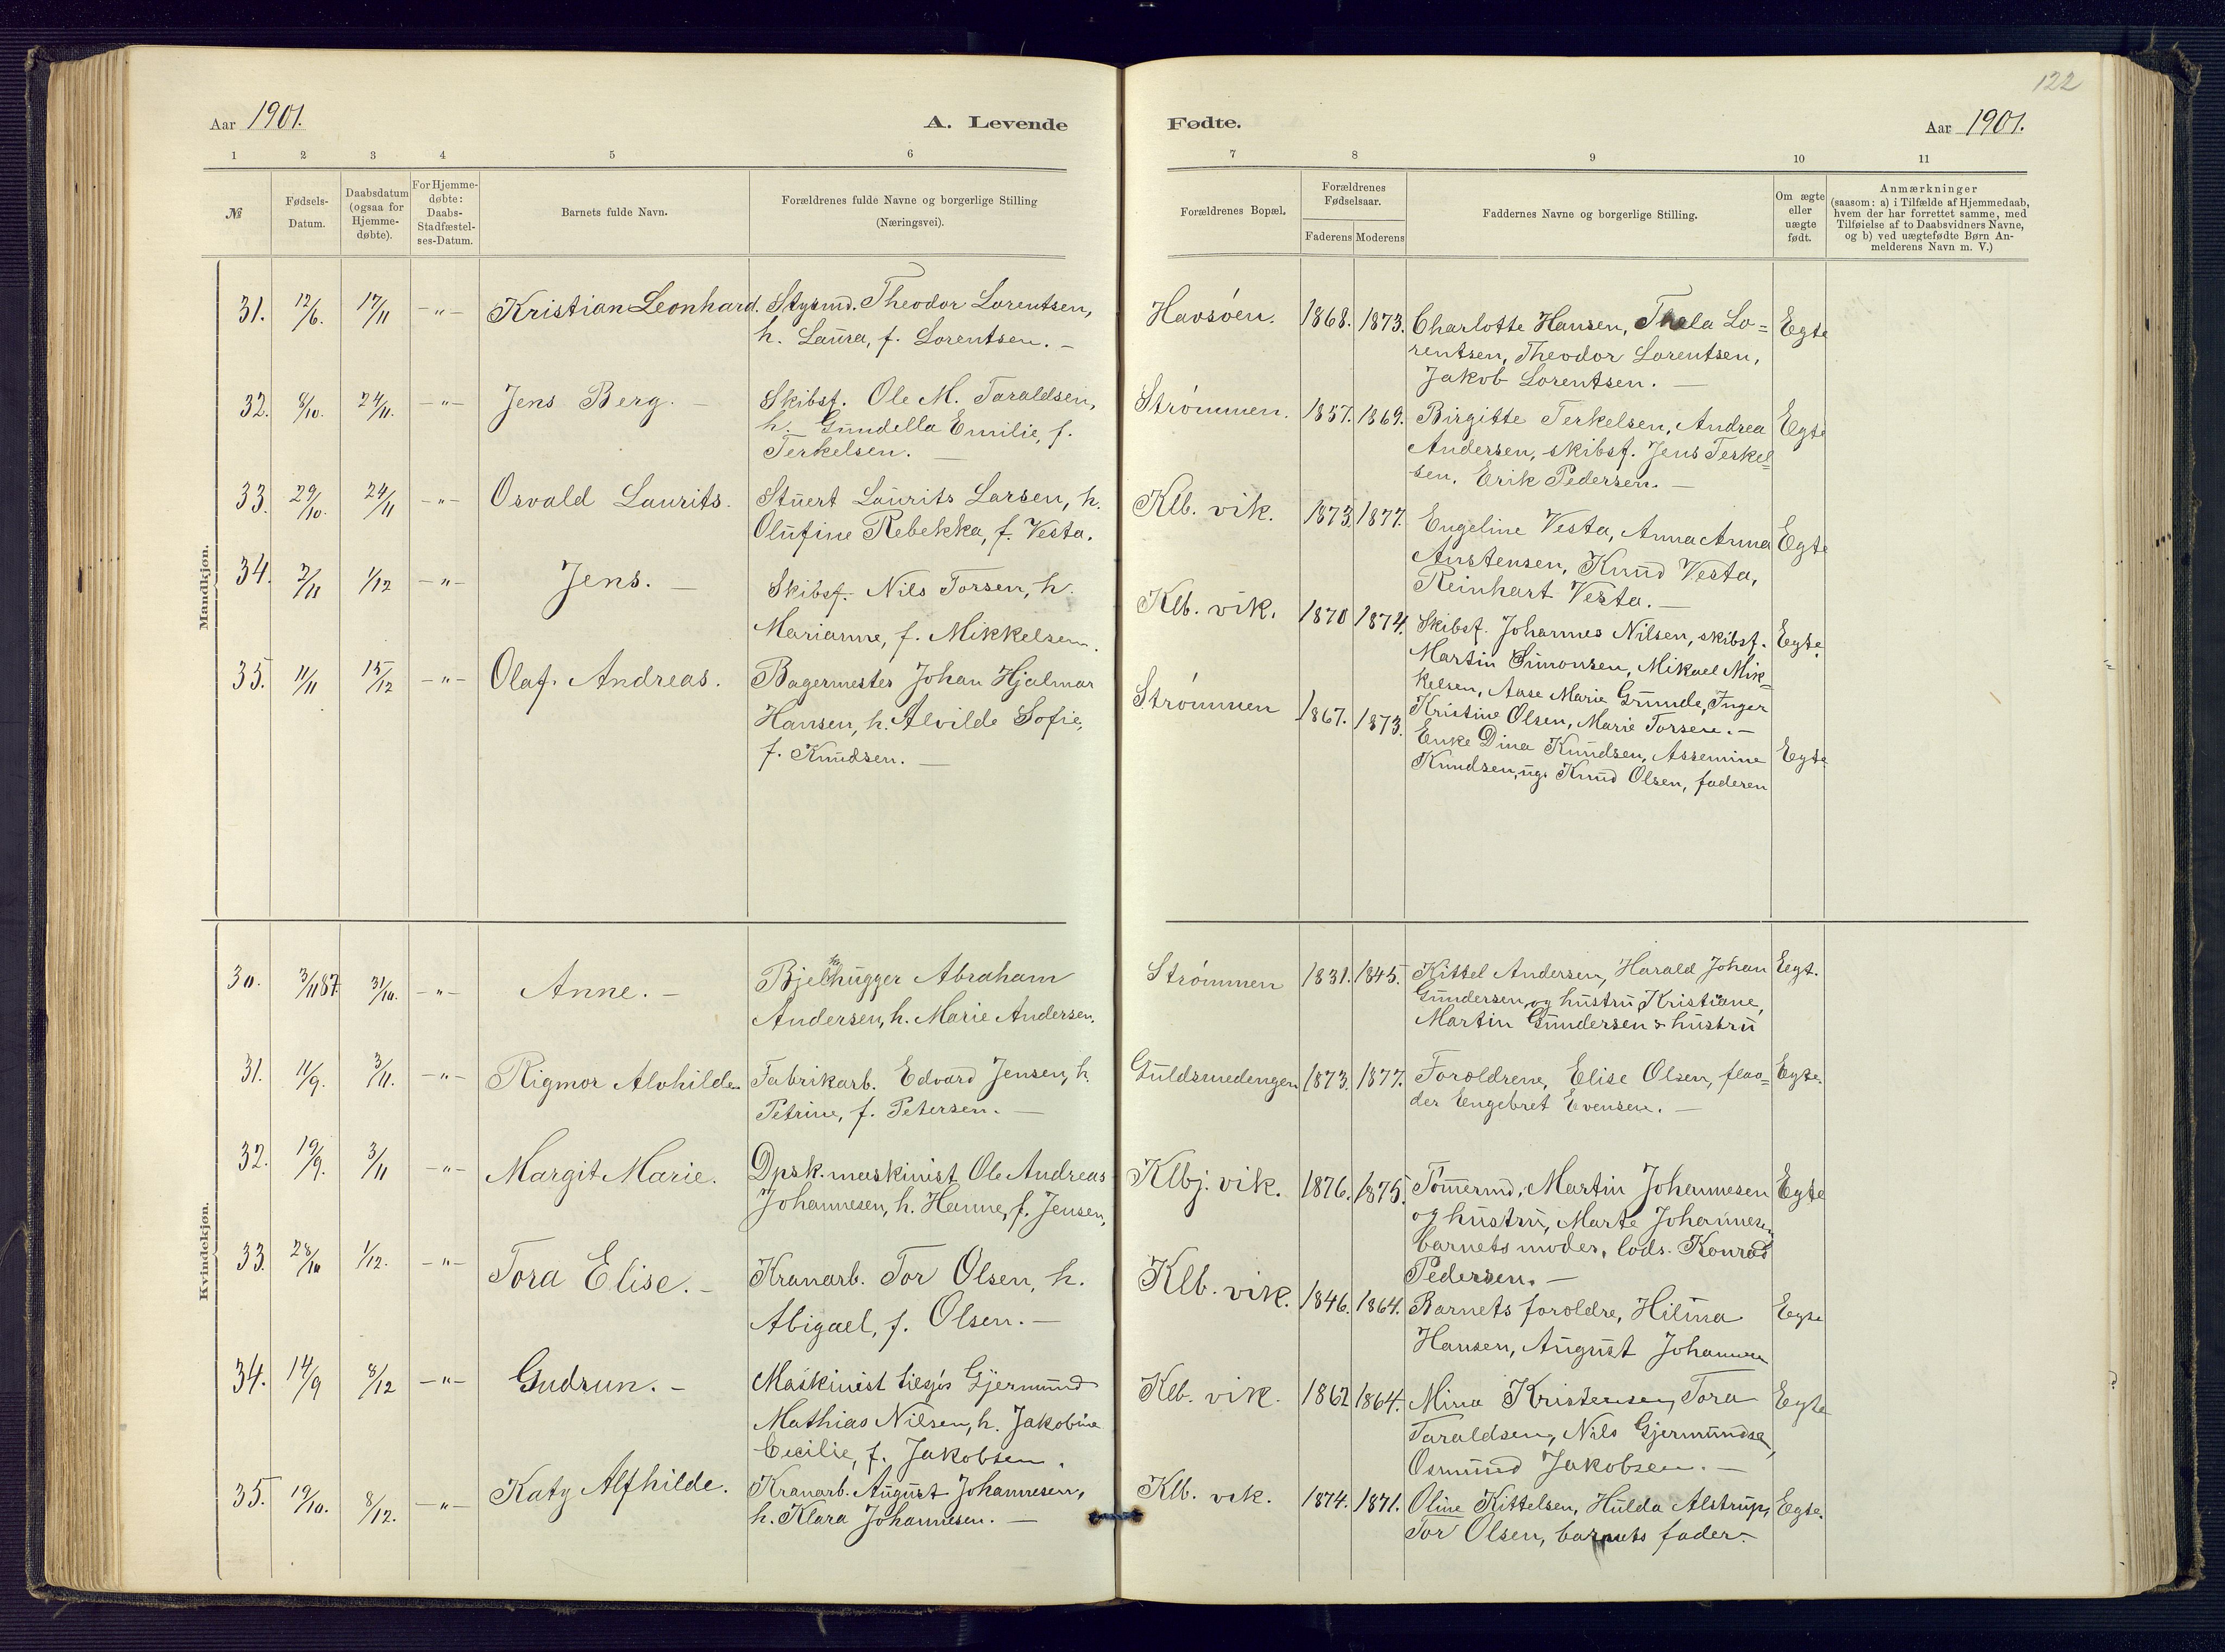 122
Aar 1901.
A. Levende
Fødte.
Aar 1901.
1 2 3 4 5 6
7 8 9 10 11
№
Fødsels-
Datum.
Daabsdatum
(ogsaa for
Hjemme-
døbte).
For Hjemme-
døbte:
Daabs-
Stadfæstel-
ses-Datum.
Barnets fulde Navn.
Forældrenes fulde Navne og borgerlige Stilling
(Næringsvei).
Forældrenes Bopæl.
Forældrenes
Fødselsaar.
Faderens Moderens
Faddernes Navne og borgerlige Stilling.
Om ægte
eller
uægte
født.
Anmærkninger
(saasom: a) i Tilfælde af Hjemmedaab,
hvem der har forrettet samme, med
Tilføielse af to Daabsvidners Navne,
og b) ved uægtefødte Børn An-
melderens Navn m. V.)
Mandkjøn.
31. 12/6. 17/11 -"- Kristian Leonhard. Styrmd. Theodor Lorentsen,
h. Laura, f. Lorentsen. -
Havsøen. 1868. 1873. Charlotte Hansen, Thola Lo= Egte
rentsen, Theodor Lorentsen,
Jakob Lorentsen. -
32. 8/10. 24/11. -"- Jens Berg. - Skibsf. Ole M. Taraldsen,
h. Gundella Emilie, f.
Terkelsen. -
Strømmen. 1857. 1869. Birgitte Terkelsen, Andrea Egte
Andersen, skibsf. Jens Terkel=
sen, Erik Pedersen. -
33. 29/10. 24/11 -"- Osvald Laurits. Stuert Laurits Larsen, h.
Olufine Rebekka, f. Vesta.
Klb. vik. 1873. 1877. Engeline Vesta, Anna Anna Egte
Austensen, Knud Vesta,
Reinhart Vesta. -
34. 2/11 1/12 -"- Jens. - Skibsf. Nils Torsen, h.
Marianne, f. Mikkelsen.
Klb. vik. 1870 1874. Skibsf. Johannes Nilsen, skibsf. Egte.
Martin Simonsen, Mikael Mik=
kelsen, Aase Marie Grunde, Inger
Kristine Olsen, Marie Torsen. -
35. 11/11 15/12 -"- Olaf Andreas. Bagermester Johan Hjalmar
Hansen, h. Alvilde Sofie,
f. Knudsen. -
Strømmen 1867. 1873. Enke Dina Knudsen, Assemine Egte
Knudsen, ug. Knud Olsen, faderen
Kvindekjøn.
30. 3/11 87. 31/10. -"- Anne. - Bjelkehugger Abraham
Andersen, h. Marie Andersen.
Strømmen 1831. 1845. Kittel Andersen, Harald Johan Egt.
Gundersen og hustru Kristiane,
Martin Gundersen & hustru
31. 11/9. 3/11. -"- Rigmor Alvhilde. Fabrikarb. Edvard Jensen, h.
Petrine, f. Petersen. -
Guldsmedengen 1873. 1877. Foroldrene, Elise Olsen, flao= Egte.
der Engebret Evensen. -
32. 19/9. 3/11 -"- Margit Marie. Dpsk. maskinist Ole Andreas
Johannesen, h. Hanne, f. Jensen,
Klbj. vik. 1876. 1875. Tømermd. Martin Johannesen Egte
og hustru, Marte Johannesen,
barnets moder, lods. Konrad
Pedersen. -
33. 28/10 1/12. -"- Tora Elise. - Kranarb. Tor Olsen, h.
Abigael, f. Olsen. -
Klb. vik. 1846. 1864. Barnets foroldre, Hilma Egte
Hansen, August Johannesen
34. 14/9 8/12 -"- Gudrun. - Maskinist tilsjøs Gjermund
Mathias Nilsen, h. Jakobine
Cecilie, f. Jakobsen.
Klb. vik. 1862 1864. Mina Kristensen, Tora Egte
Taraldsen, Nils Gjermundse,
Osmund Jakobsen. -
35. 19/10. 8/12. -"- Katy Alfhilde. Kranarb. August Johannesen,
h. Klara Johannesen. -
Klb. vik. 1874. 1871. Oline Kittelsen, Hulda Alstrup, Egte.
Tor Olsen, barnets fader. -